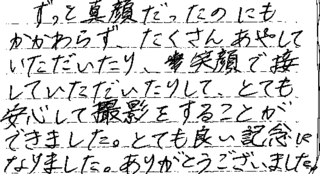 ずっと真顔だったのにも
かかわらず、たくさんあやして
いただいたり、笑顔で接
していただいたりして、とても
安心して撮影をすることが
できました。とても良い記念に
なりました。ありがとうございました。